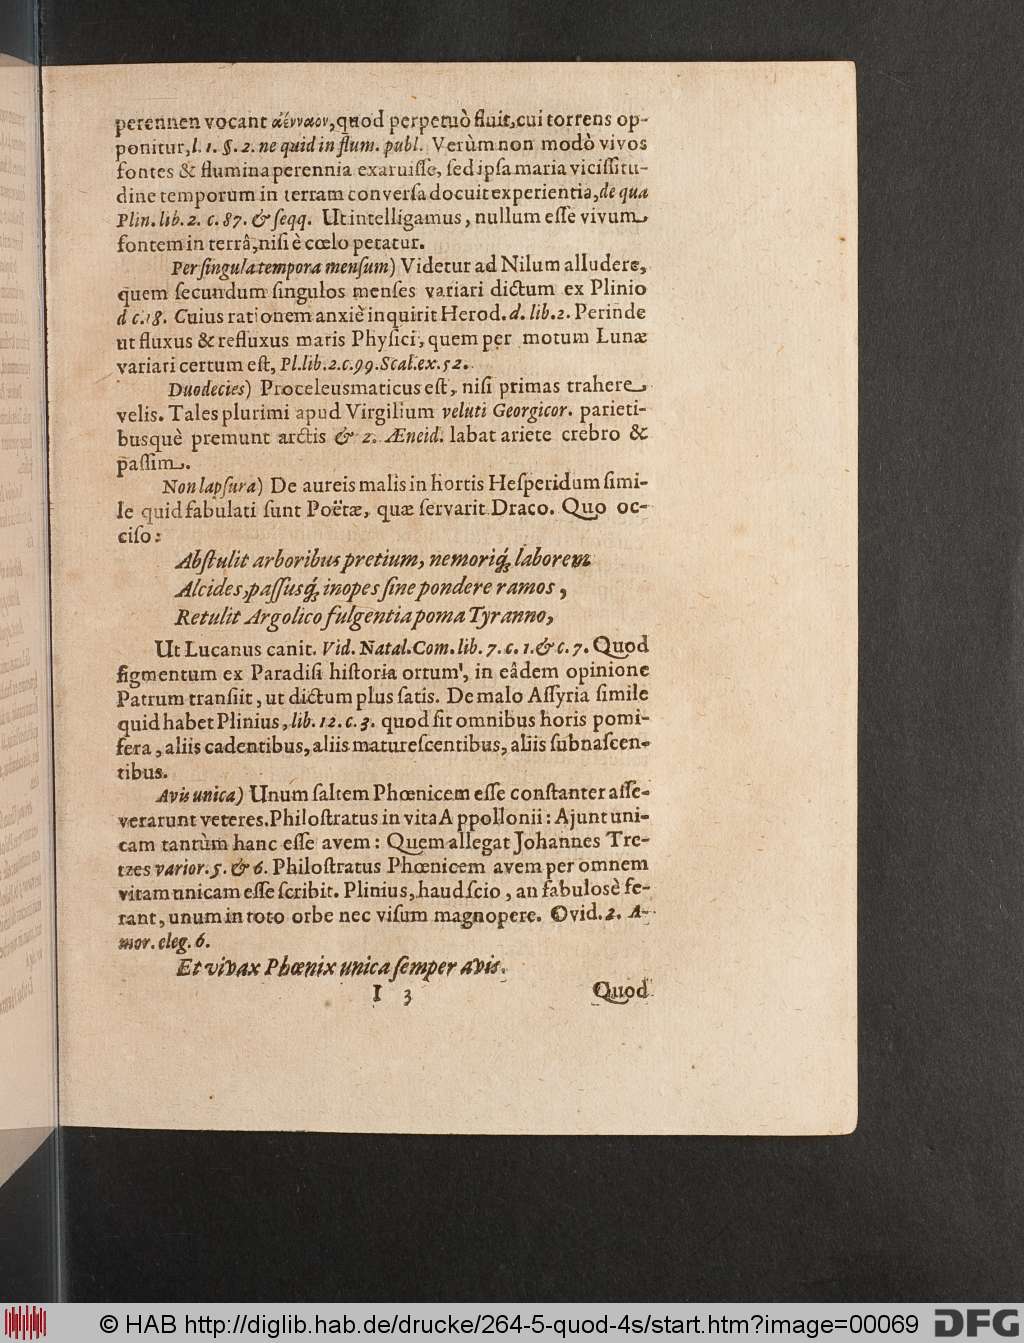 perennen vocant ἀένναον, quod perpetuò fluit, cui torrens op-
ponitur, l. 1. §. 2. ne quid in flum. publ. Verùm non modò vivos
fontes & flumina perennia exaruiſſe, ſed ipſa maria viciſſitu-
dine temporum in terram converſa docuit experientia, de qua
Plin. lib. 2. c. 87. & ſeqq. Ut intelligamus, nullum eſſe vivum
fontem in terrâ, niſi è cœlo petatur.
Per ſingula tempora menſum) Videtur ad Nilum alludere,
quem ſecundum ſingulos menſes variari dictum ex Plinio
d c. 18. Cuius rationem anxiè inquirit Herod. d. lib. 2. Perinde
ut fluxus & refluxus maris Phyſici, quem per motum Lunæ
variari certum eſt, Pl. lib. 2. c. 99. Scal. ex. 52.
Duodecies) Proceleusmaticus eſt, niſi primas trahere
velis. Tales plurimi apud Virgilium veluti Georgicor. parieti-
busquè premunt arctis & 2. Æneid. labat ariete crebro &
paſſim.
Non lapſura) De aureis malis in hortis Heſperidum ſimi-
le quid fabulati ſunt Poëtæ, quæ ſervarit Draco. Quo oc-
ciſo:
Abſtulit arboribus pretium, nemoriq́; laborem
Alcides, paſſusq́; inopes ſine pondere ramos,
Retulit Argolico fulgentia poma Tyranno,
Ut Lucanus canit. Vid. Natal. Com. lib. 7. c. 1. & c. 7. Quod
figmentum ex Paradiſi hiſtoria ortum', in eâdem opinione
Patrum tranſiit, ut dictum plus ſatis. De malo Aſſyria ſimile
quid habet Plinius, lib. 12. c. 3. quod ſit omnibus horis pomi-
fera, aliis cadentibus, aliis matureſcentibus, aliis ſubnaſcen-
tibus.
Avis unica) Unum ſaltem Phœnicem eſſe conſtanter aſſe-
verarunt veteres. Philoſtratus in vita Appollonii: Ajunt uni-
cam tantùm hanc eſſe avem: Quem allegat Johannes Tre-
tzes varior. 5. & 6. Philoſtratus Phœnicem avem per omnem
vitam unicam eſſe ſcribit. Plinius, haud ſcio, an fabulosè fe-
rant, unum in toto orbe nec viſum magnopere. Ovid. 2. A-
mor. eleg. 6.
Et vivax Phœnix unica ſemper avis.
I 3 Quod
© HAB http://diglib.hab.de/drucke/264-5-quod-4s/start.htm?image=00069 DFG